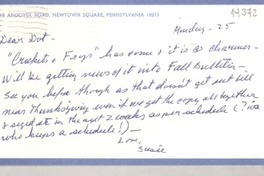 ANDOVER ROAD, NEWTOWN SQUARE, PENNSYLVANIA 19073
Monday - 25
Dear Dot -
"Crickets & Frogs" has come & it is a charmer -
Will be getting news of it into Fall Bulletin -
See you before though as that doesn't get out till
near Thanksgiving even if we get the copy all together
in the next 2 weeks as per schedule (?
who keeps a schedule!) -
Love,
Susie